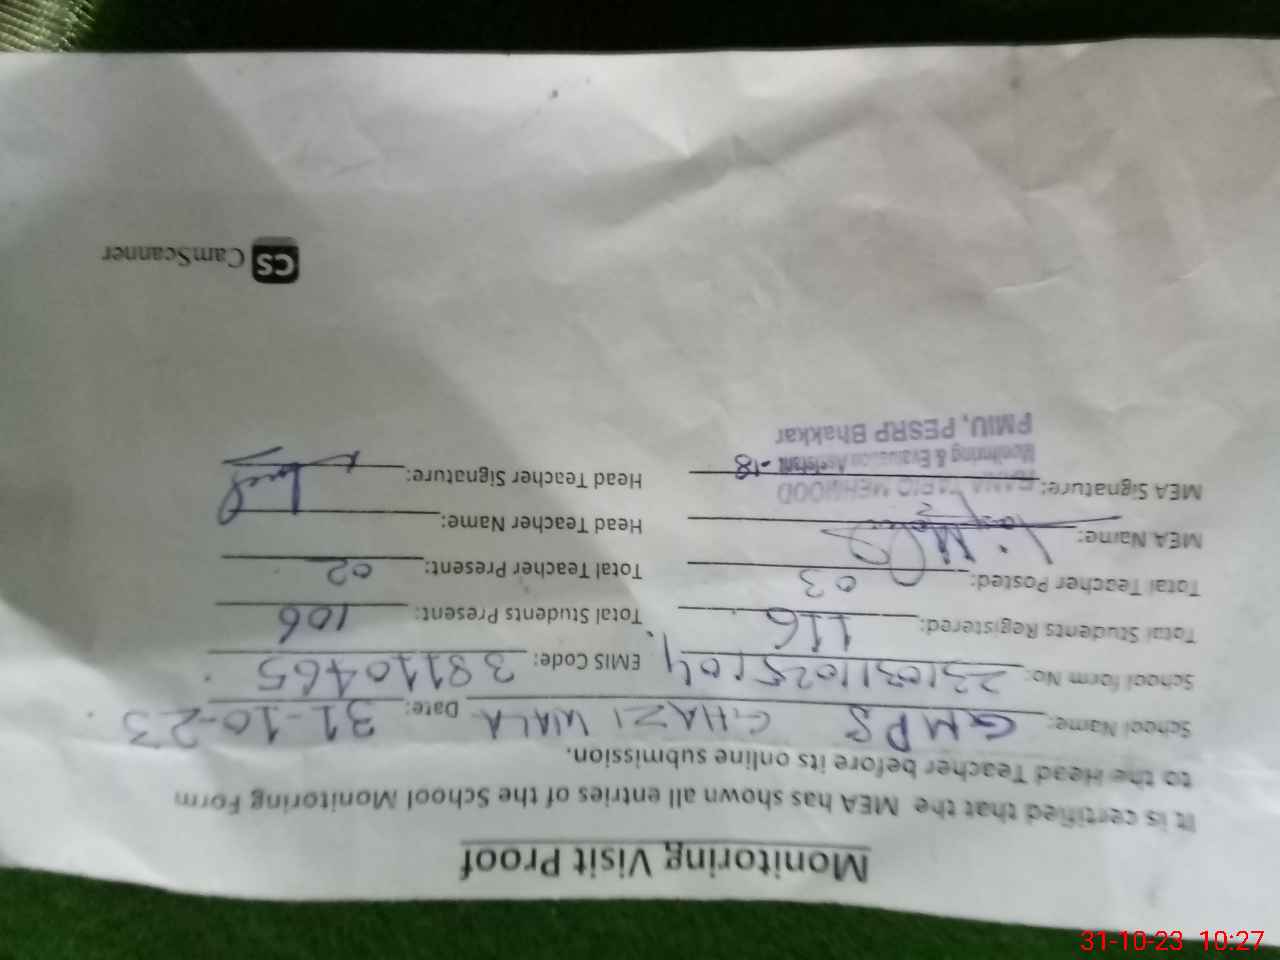 Monitoring Visit Proof
It is certified that the MEA has shown all entries of the School Monitoring Form
to the Head Teacher before its online submission.
School Name: GMPS GHAZI WALA Date: 31-10-23
School form No: EMIS Code: 38110465
Total Students Registered: 116 Total Students Present: 106
Total Teacher Posted: 03 Total Teacher Present: 02
MEA Name: Head Teacher Name:
MEA Signature: Head Teacher Signature:
MEHMOOD
Monitoring & Evaluation Assistant -18
PMIU, PESRP Bhakkar
CS CamScanner
31-10-23 10:27